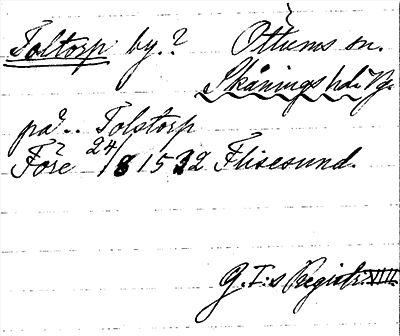 Toltorp by.? Ottums sn.
Skånings hd. Vg.
på.. Tolstorp
Före 24/8 1532 Flisesund.
G.I:s Registr. VIII